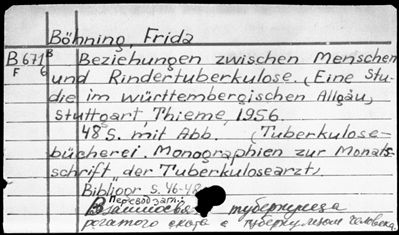 Böhning, Frida
B 671 B Beziehungen zwischen Menschen
F 6 und Rindertuberkulose. (Eine Stu-
die im württembergischen Allgäu,
Stuttgart, Thieme, 1956.
48 S. mit Abb. (Tuberkulose-
bücherei. Monographien zur Monats-
schrift "der Tuberkulosearzt".
Bibliogr S. 46-48
Перевод загл.:
Взаимосвязь туберкулеза
рогатого скота с туберкулезом человека